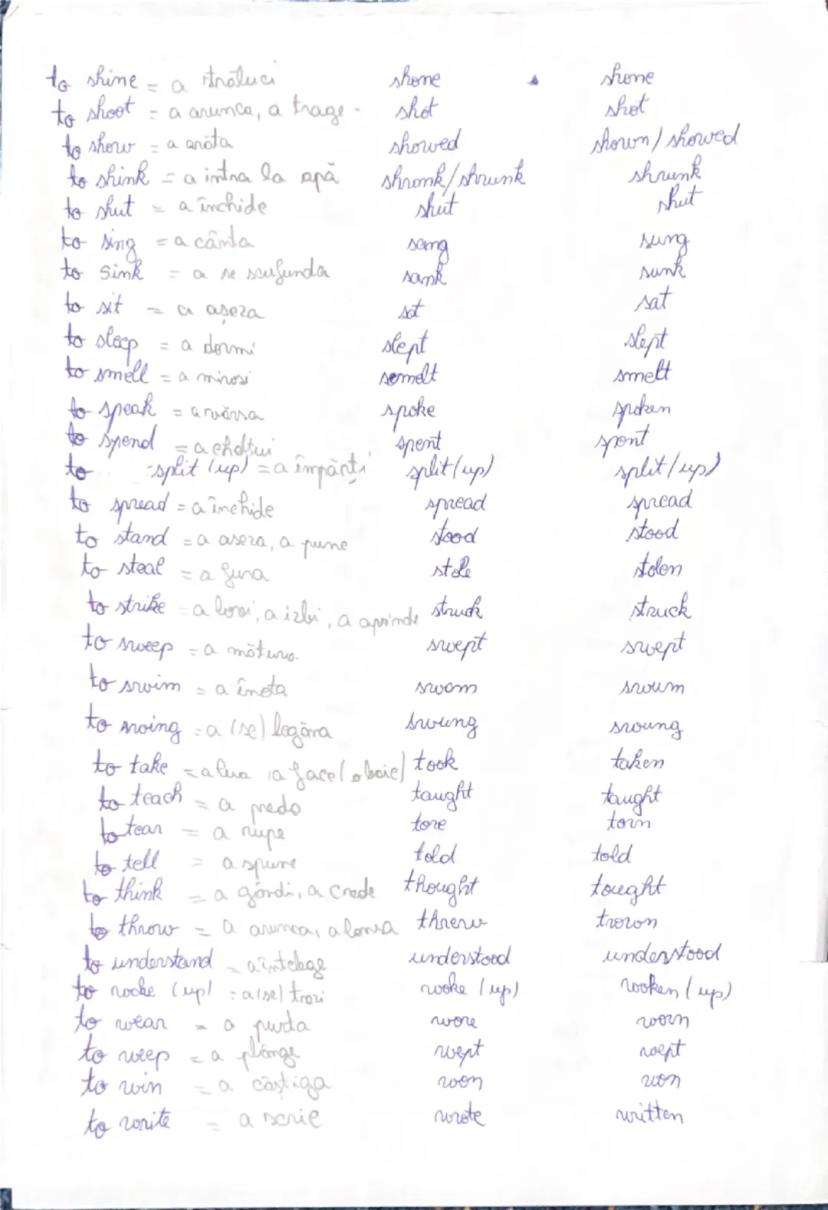 to shine = a străluci shone shone
to shoot = a arunca, a trage - shot shot
to show = a arăta showed shown/showed
to shink = a intra la apă shronk/shrunk shrunk
to shut = a închide shut shut
to sing = a cânta sang sung
to sink = a se scufunda sank sunk
to sit = a așeza sat sat
to sleep = a dormi slept slept
to smell = a mirosi somelt smelt
to speak = a vărsa spoke spoken
to spend = a cheltui spent spent
to split (up) = a împărți split(up) split(up)
to spread = a închide spread spread
to stand = a aseza, a pune stood stood
to steal = a fura stole stolen
to strike = a lovi, a izbi, a aprinde struck struck
to sweep = a mătura. swept swept
to swim = a înota swam swum
to swing = a (se) legăna swung swung
to take = a lua, a face (o baie) took taken
to teach = a preda taught taught
to tear = a rupe tore torn
to tell = a spune told told
to think = a gândi, a crede thought tought
to throw = a arunca, a lansa threw trown
to understand = a înțelege understood understood
to woke (up) = a (se) trezi woke (up) woken (up)
to wear = a purta wore worn
to weep = a plânge wept wept
to win = a câștiga won won
to write = a scrie wrote written